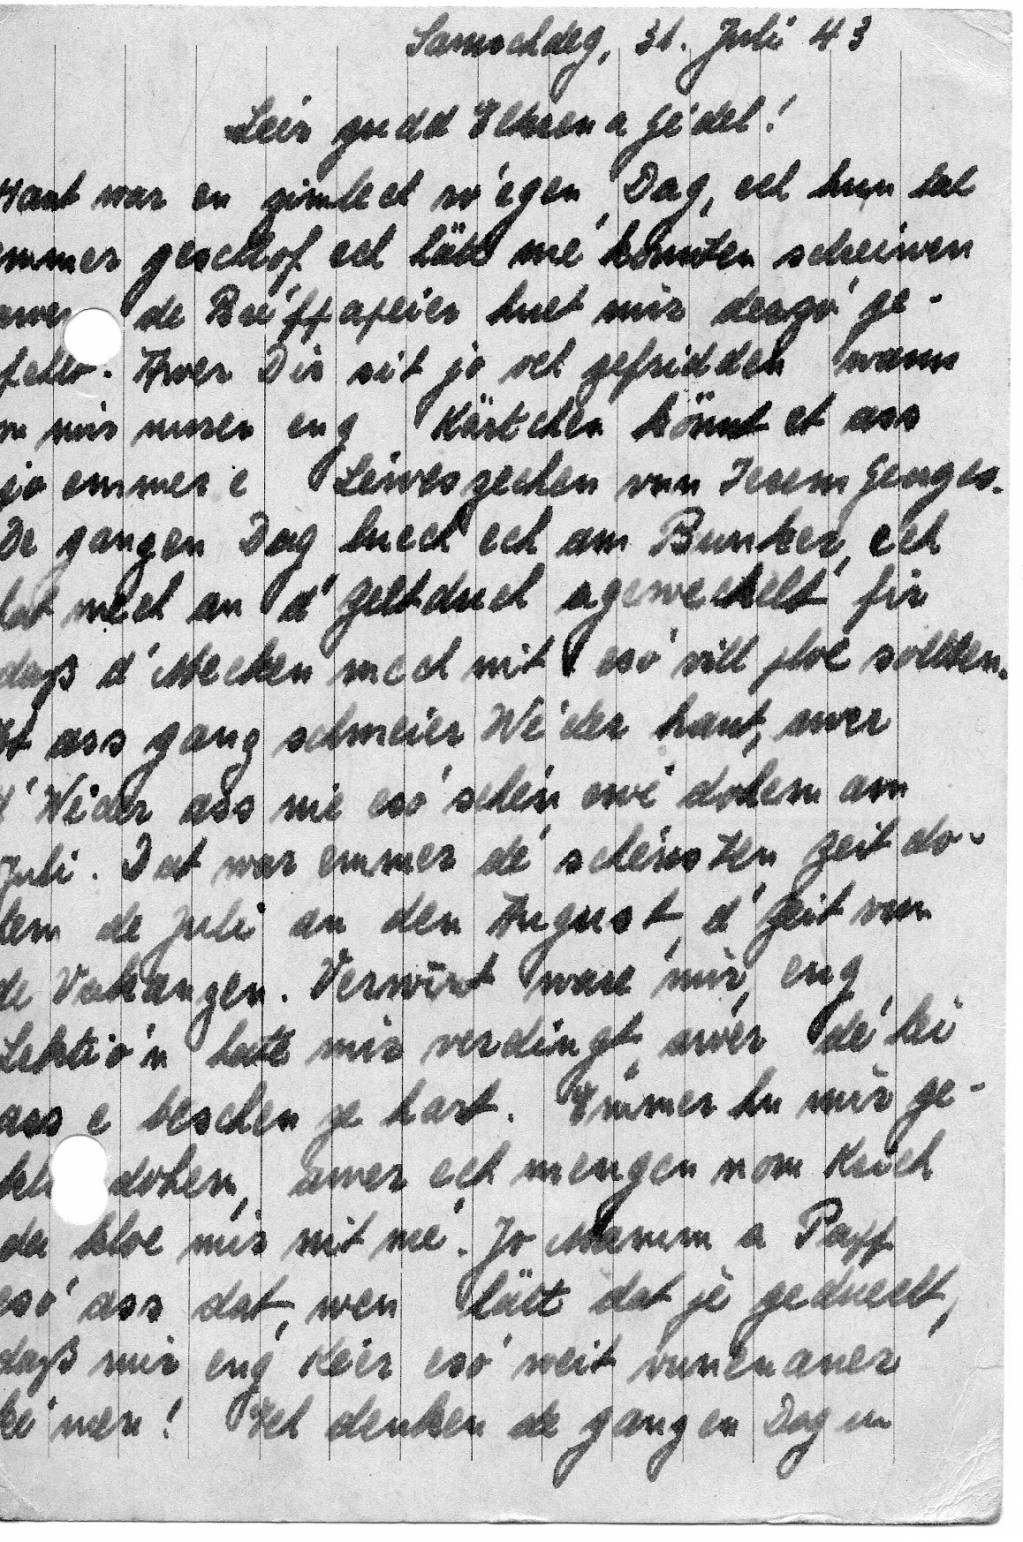 Samschdeg, 31. Juli 43
Leiw gudd Eltren a Gédel!
Haut war en zimlech ro'egen Dag, ech hun bal
emmer geschlof ech hätt mé konnten schreiwen
awer de Bréffapeier huet mir dergo' ge-
fehlt. Awer Dir sit jo och gefridden wann
mir nuren eng Kärtchen könnt et ass
jo emmer e Lieweszechen vun Ierem Georges.
De ganzen Dag huech ech am Bunker, ech
hat mech an d'Zeltduch agewechelt fir
daß d'Mecken mech nit eso' vill ploe sollten.
Et ass ganz schweier Wéder haut, awer
d'Wéder ass nie eso' schéin ewé dohem am
Juli. Dat war emmer dé schéinsten Zeit do-
hem de Juli an den August, d'Zeit vun
de Vakanzen. Verwint ware mir, eng
Lektio'n hate mir verdingt, awer dé hei
ass e beschen ze hart. Emmer hu mir ge-
klot dohem, awer ech mengen nom Krich
da kloe mir nit mé. Jo Mamm a Papp
eso' ass dat, wen hätt dat je geduecht,
daß mir eng Keier eso' weit vunenaner
ké'men! Ech denken de ganzen Dag un